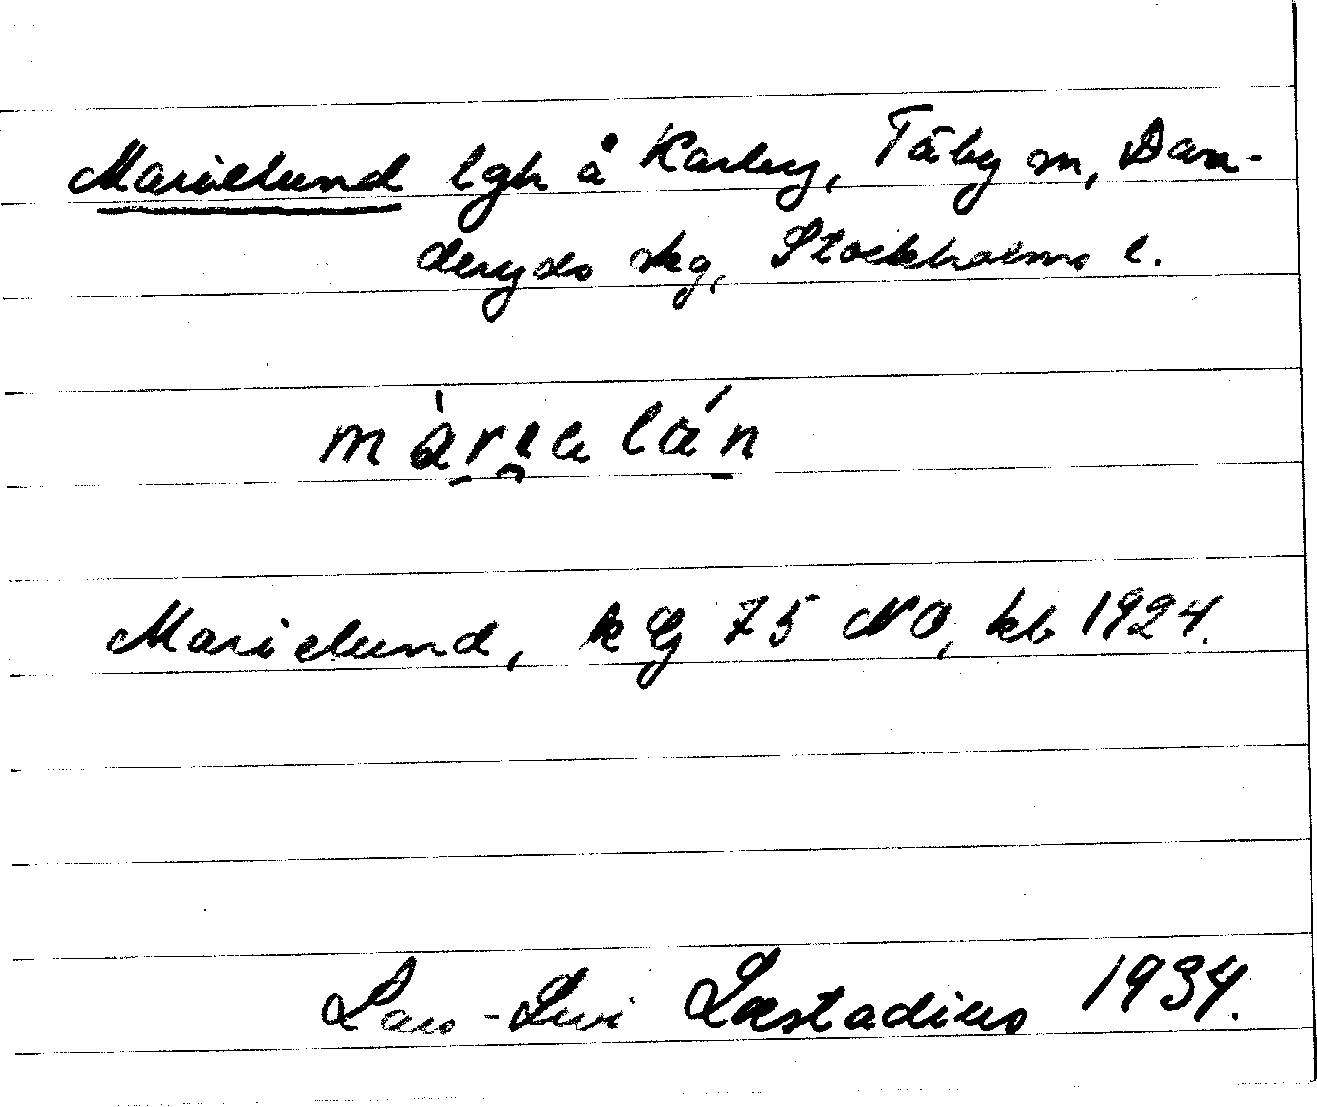 Marielund lgh å Karby, Täby sn, Dan-
deryds skg, Stockholms l.
Marielund, k Gj 75 NO, kb 1924.
Lars-Levi Læstadius 1934.